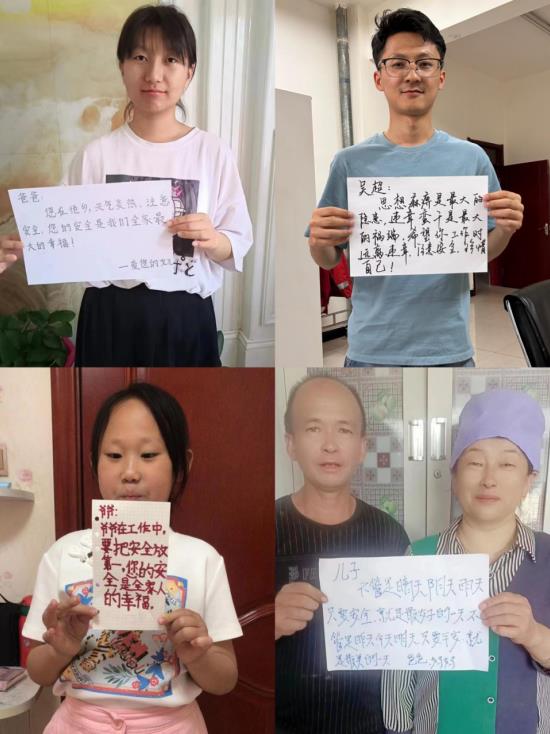 爸爸
您在他乡,天气炎热,注意
安全,您的安全是我们全家最
大的幸福!
—爱您的
吴超:
思想麻痹是最大的
隐患,违章蛮干是最大
的祸端,希望你工作时
远离违章,注意安全,珍惜
自己!
爷爷:
爷爷在工作中,
要把安全放
第一,您的安
全是全家人
的幸福。
儿子
不管是晴天阴天雨天
只要安全,就是最好的一天 不
管是昨天今天明天 只要平安 就
是最美的一天 爸爸,妈妈